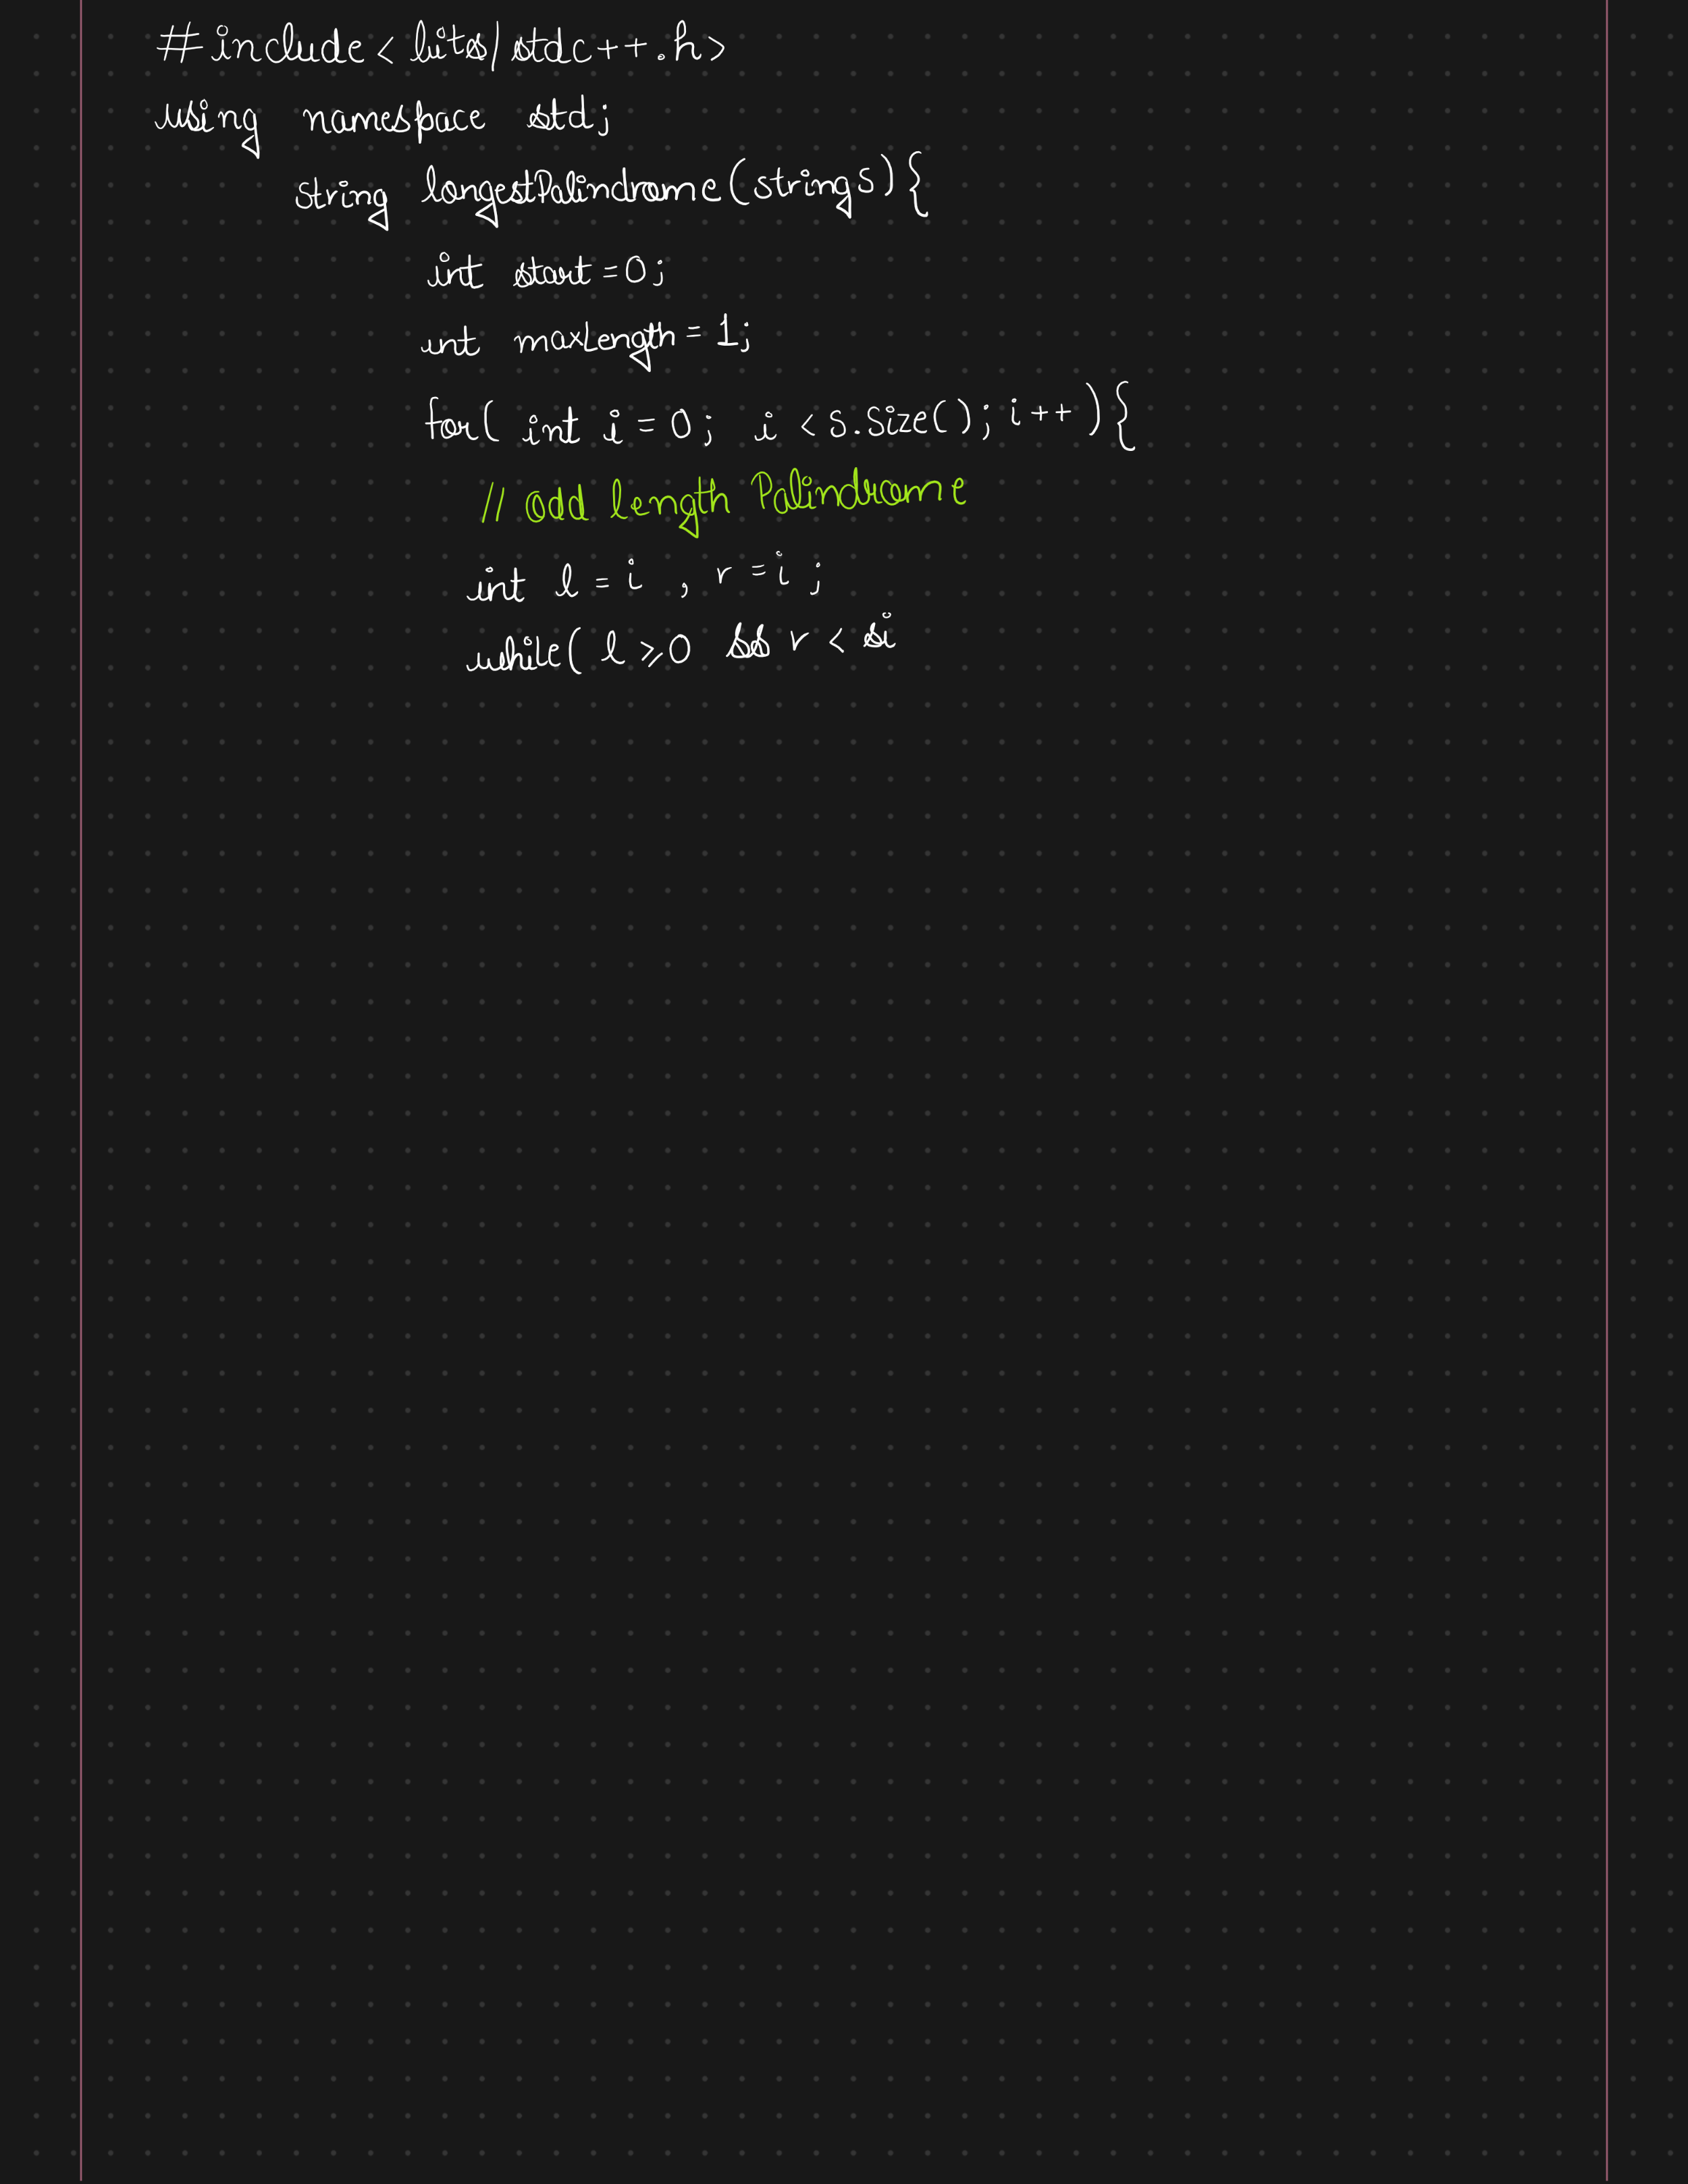 #include<bits/stdc++.h>
using namespace std;
string longestPalindrome(string s){
int start=0;
int maxLength=1;
for( int i=0; i<s.size(); i++){
// odd length Palindrome
int l=i , r=i ;
while( l>=0 && r < si